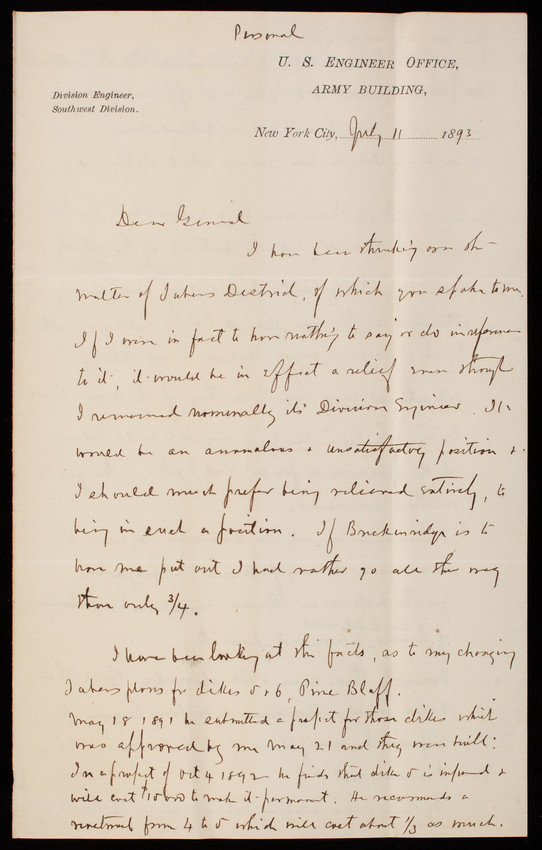 Personal
U. S. ENGINEER OFFICE,
ARMY BUILDING,
Division Engineer,
Southwest Division.
New York City, July 11 1893
Dear General
I have been thinking over the
matter of Tabers District, of which you spoke to me.
If I were in fact to have nothing to say or do in reference
to it, it would be in effect a relief even though
I remained nominally its Division Engineer. It
would be an anomalous & unsatisfactory position &
I should much prefer being relieved entirely, to
being in such a position. If Breckinridge is to
have me put out I had rather go all the way
than only 3/4.
I have been looking at the facts, as to my changing
Tabers plans for dikes 5 & 6, Pine Bluff.
May 18 1891 he submitted a project for those dikes which
was approved by me May 21 and they were built.
In a project of Oct 4 1892 he finds that dike 5 is injured &
will cost to make it permanent. He recommends a
revetment from 4 to 5 which will cost about 1/3 as much.